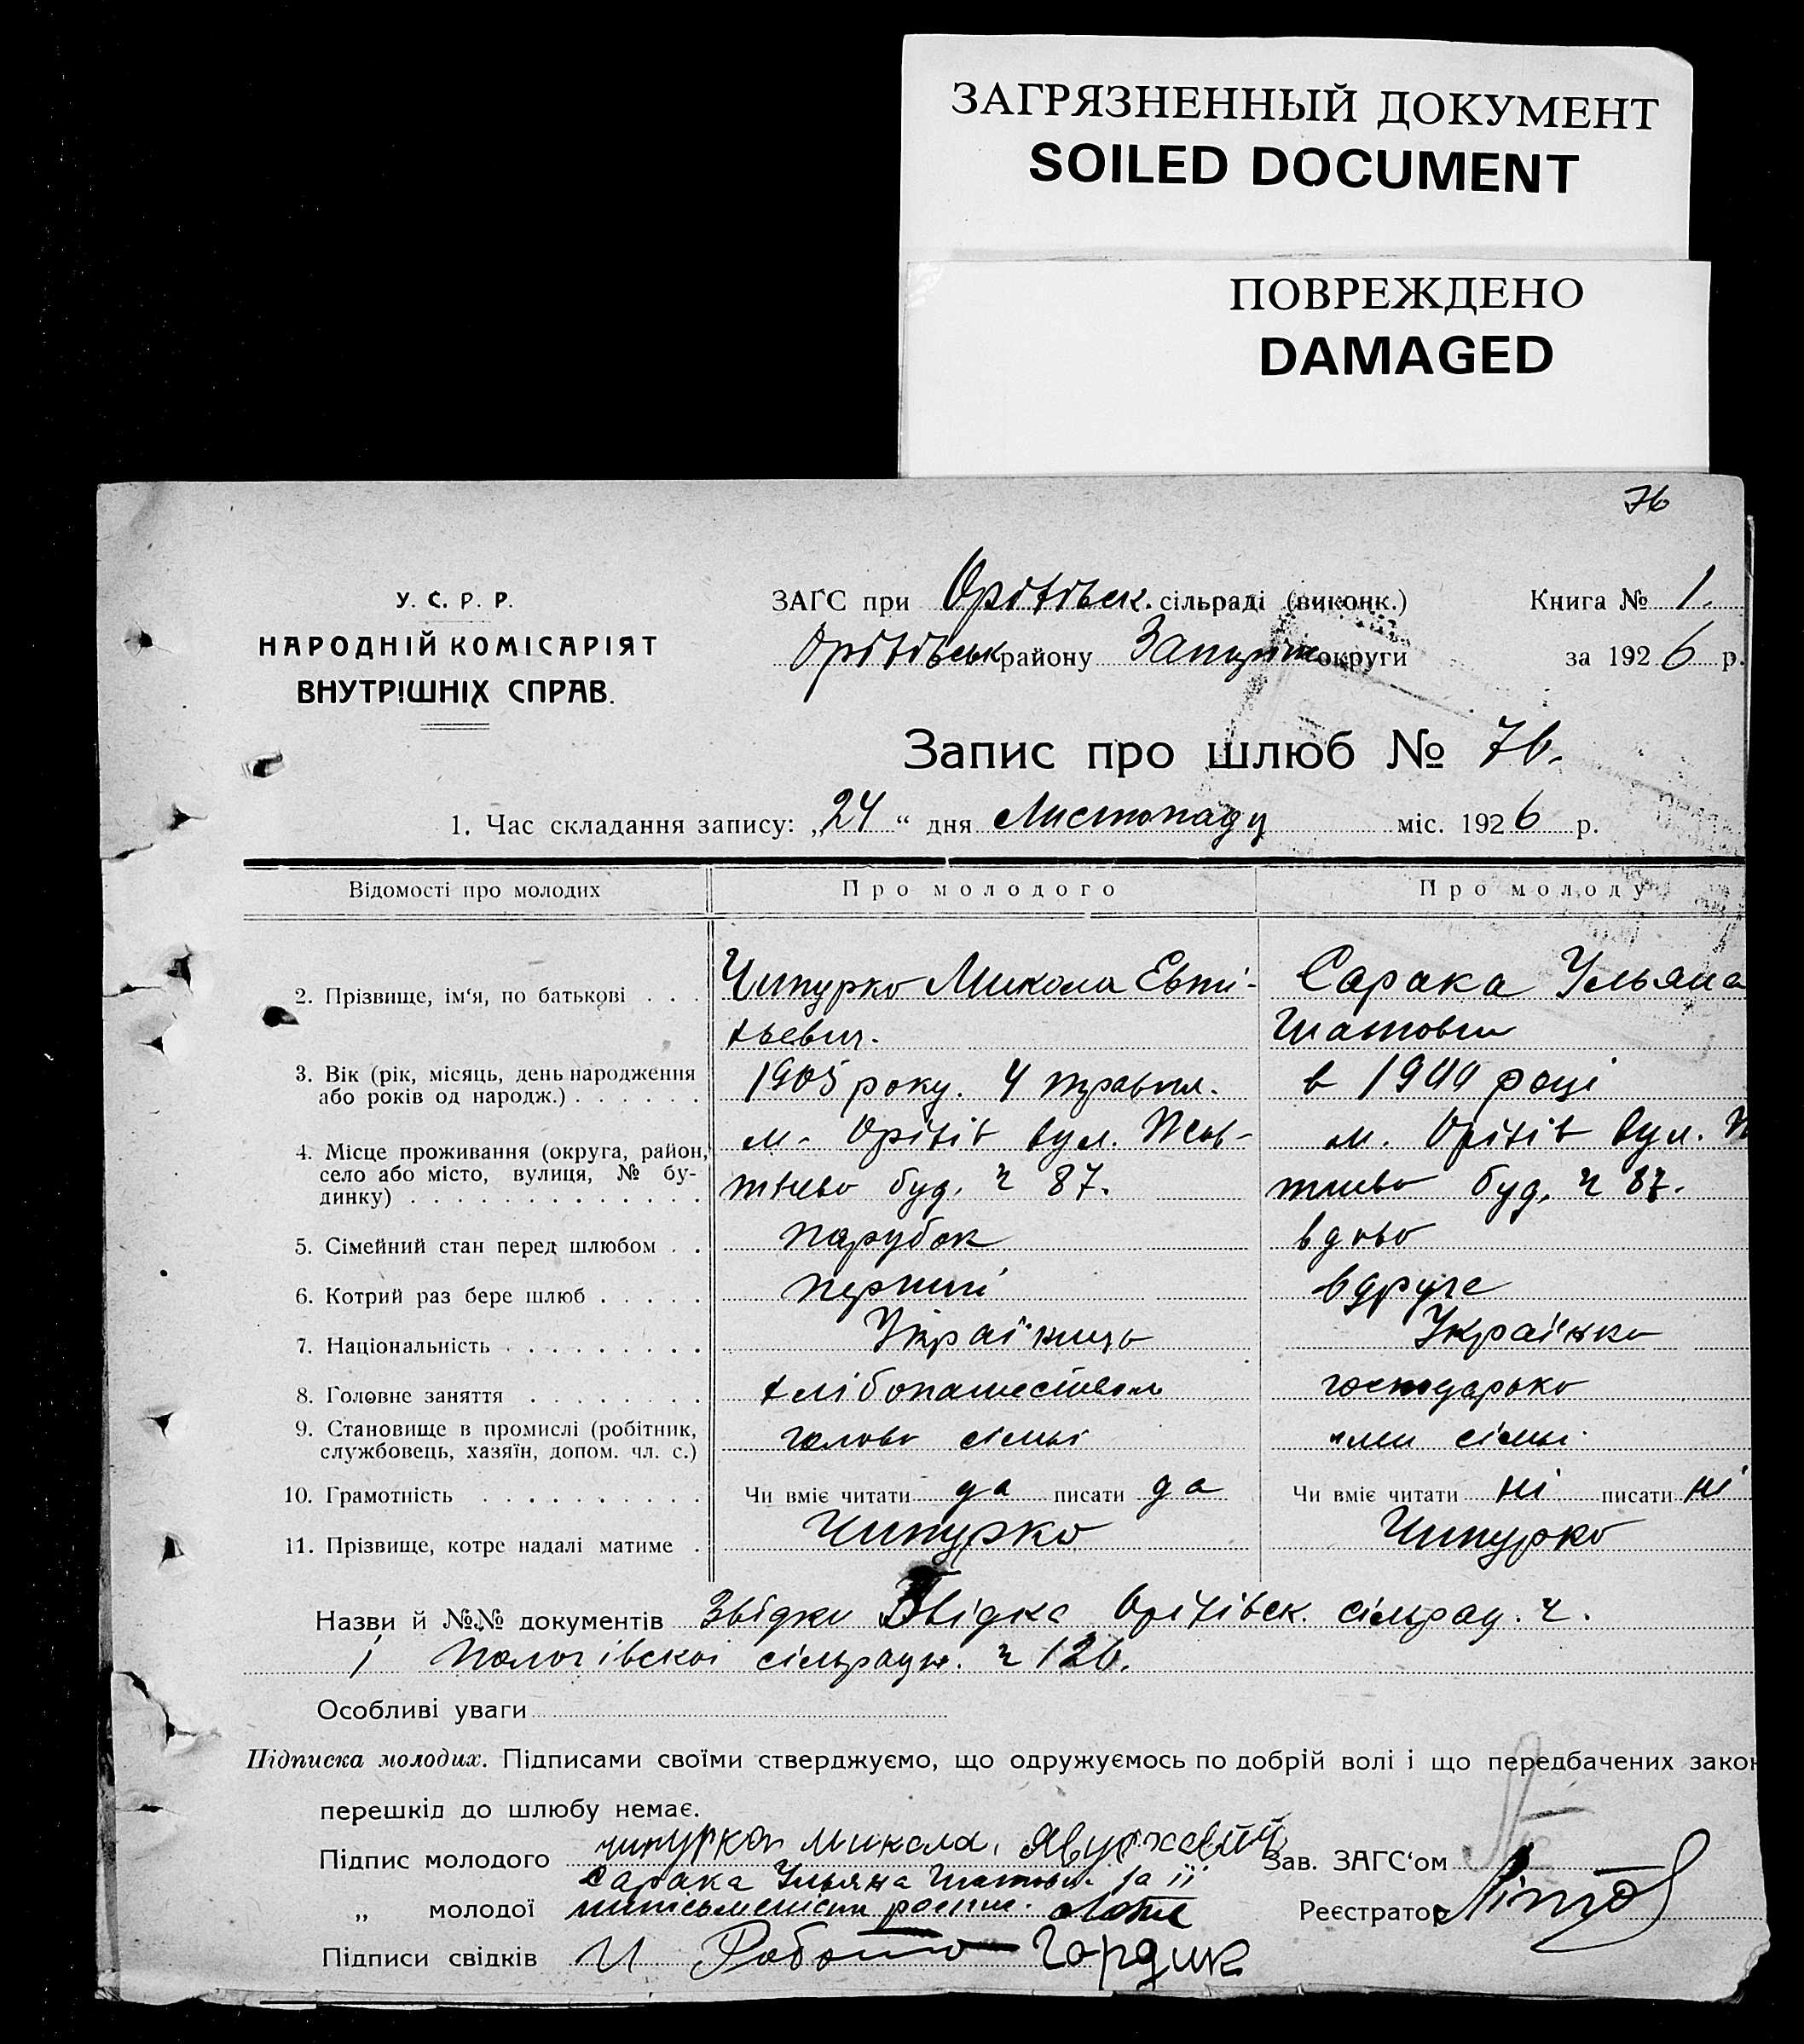 ЗАГРЯЗНЕННЫЙ ДОКУМЕНТ
SOILED DOCUMENT
ПОВРЕЖДЕНО
DAMAGED
76
У. С. Р. Р.
НАРОДНІЙ КОМІСАРІЯТ
ВНУТРІШНІХ СПРАВ.
ЗАГС при Оріхівськ. сільраді (виконк.) Книга № 1.
Оріхівськ району Запоріж округи за 1926 р.
Запис про шлюб № 76.
1. Час складання запису: „24“ дня Листопаду міс. 1926 р.
Відомості про молодих Про молодого Про молоду
2. Прізвище, ім‘я, по батькові . . . Чипурко Микола Евти- Сарака Ульяна
хьевич.
3. Вік (рік, місяць, день народження 1905 року. 4 травня. в році
або років од народж.) . . . . . .
4. Місце проживання (округа, район, м. Оріхів вул. Жов- м. Оріхів вул. Ж
село або місто, вулиця, № бу- тнева буд. ч 87. тнева буд. ч 87.
динку) . . . . . . . . . . . . .
5. Сімейний стан перед шлюбом . . парубок вдова
6. Котрий раз бере шлюб . . . . . перший вдруге
7. Національність . . . . . . . . . Українць Українка
8. Головне заняття . . . . . . . . хлібопашеством господарька
9. Становище в промислі (робітник, голова сімьі член сімьі.
службовець, хазяїн, допом. чл. с.)
10. Грамотність . . . . . . . . . . Чи вміє читати да писати да Чи вміє читати ні писати ні
11. Прізвище, котре надалі матиме . Чипурко Чипурко
Назви й №№ документів Звідки Оріхівськ. сільрад. ч.
і Пологівскоі сільради. ч 126.
Особливі уваги
Підписка молодих. Підписами своїми стверджуємо, що одружуємось по добрій волі і що передбачених закон
перешкід до шлюбу немає.
Підпис молодого чипурко микола.
Сарака Ульяна за її
„ молодої
Зав. ЗАГС‘ом
Реєстратор
Підписи свідків И Гордик